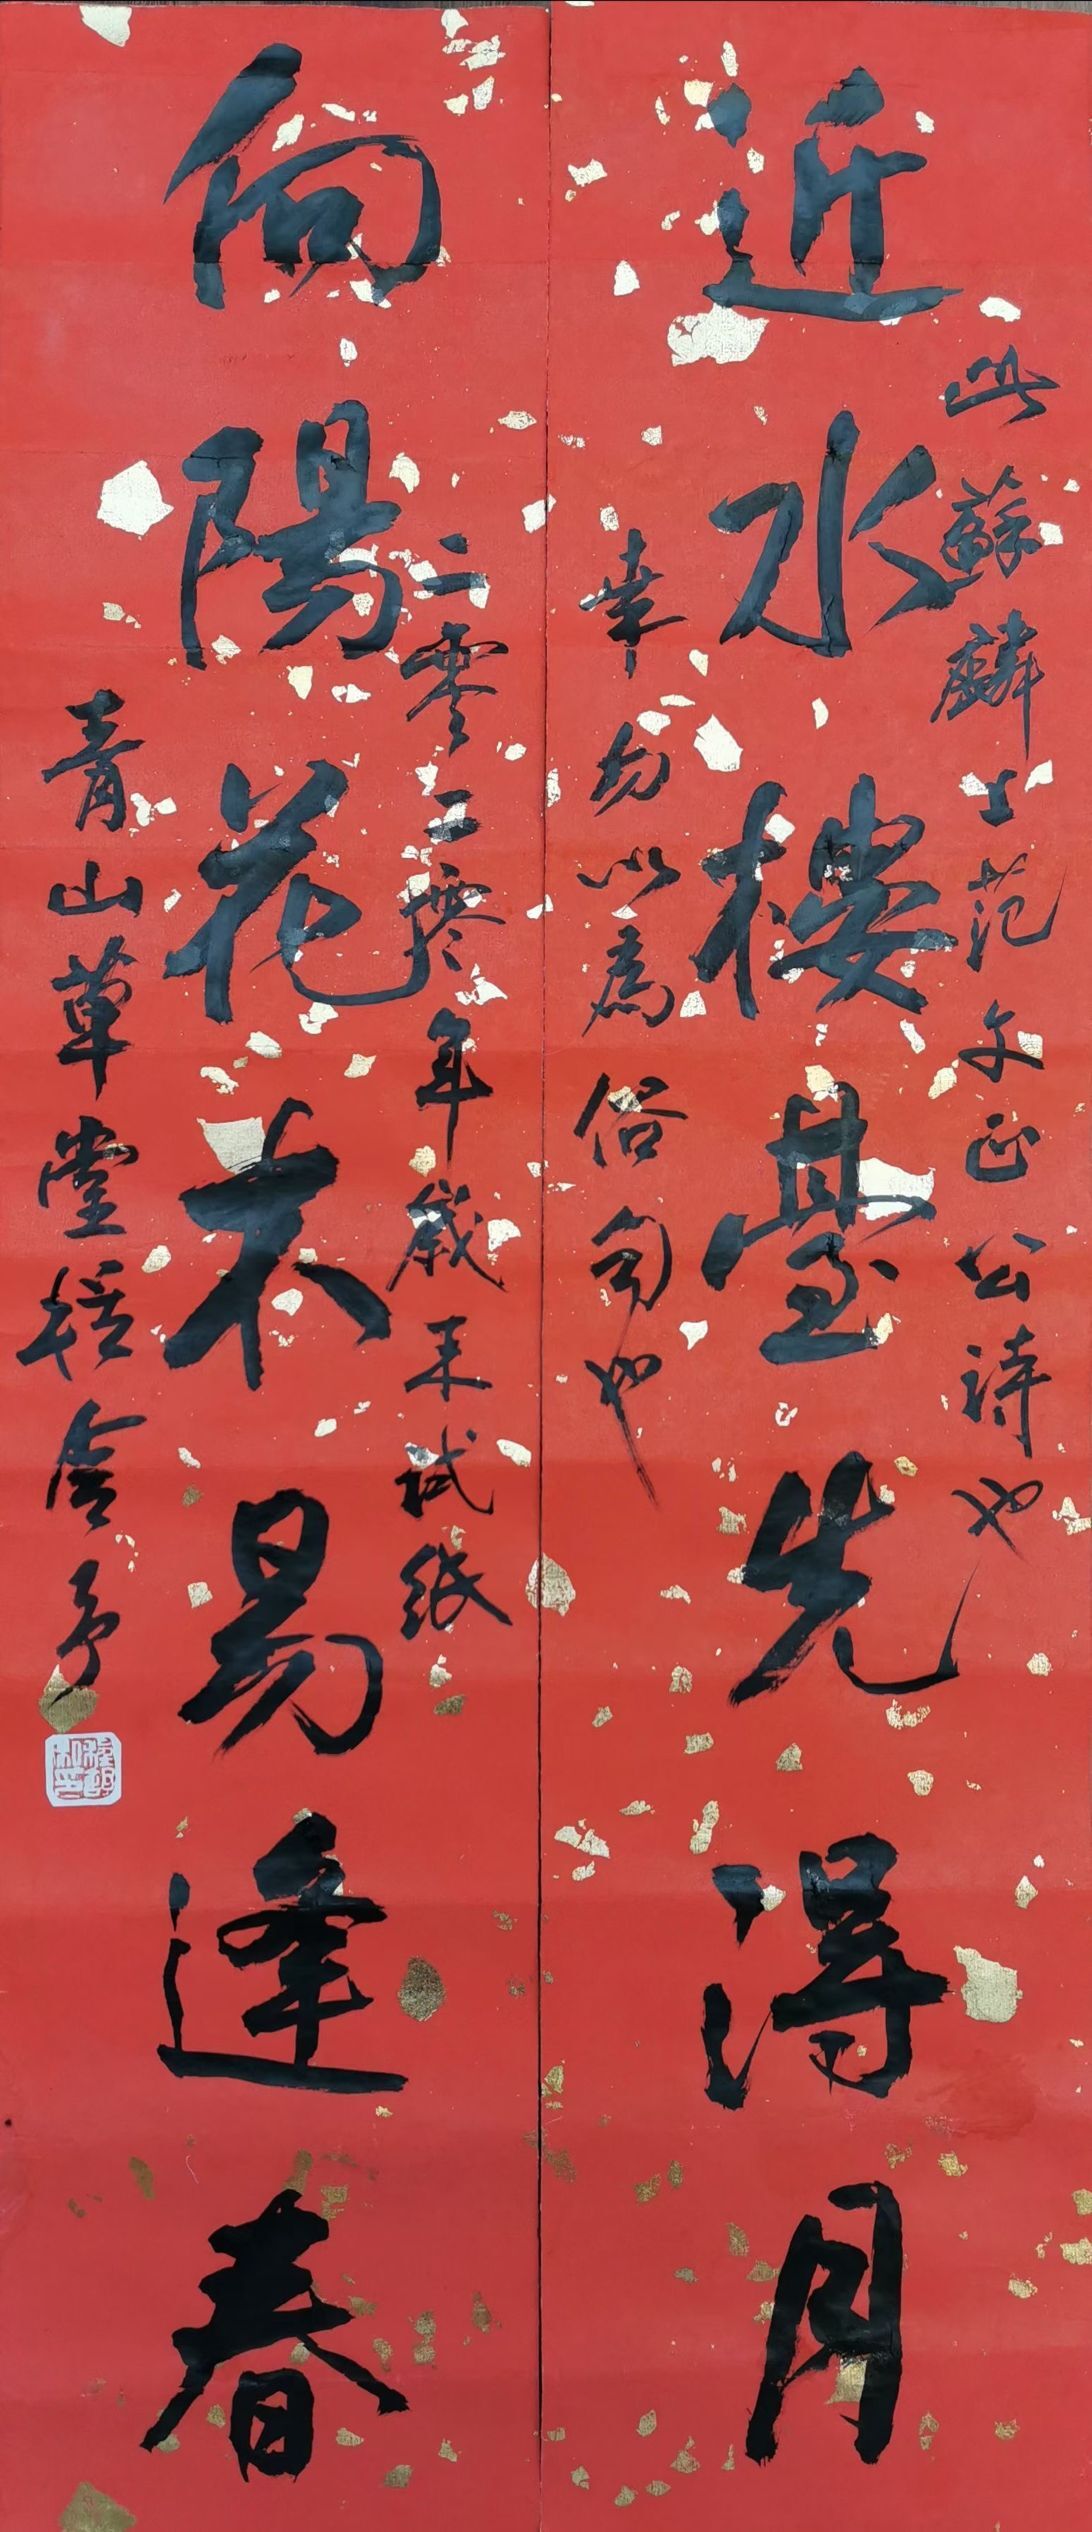 近水樓臺先得月
此蘇麟上范文正公詩也
幸勿以為俗句也
向陽花木易逢春
二零二零年歲末試紙
青山草堂 舍予